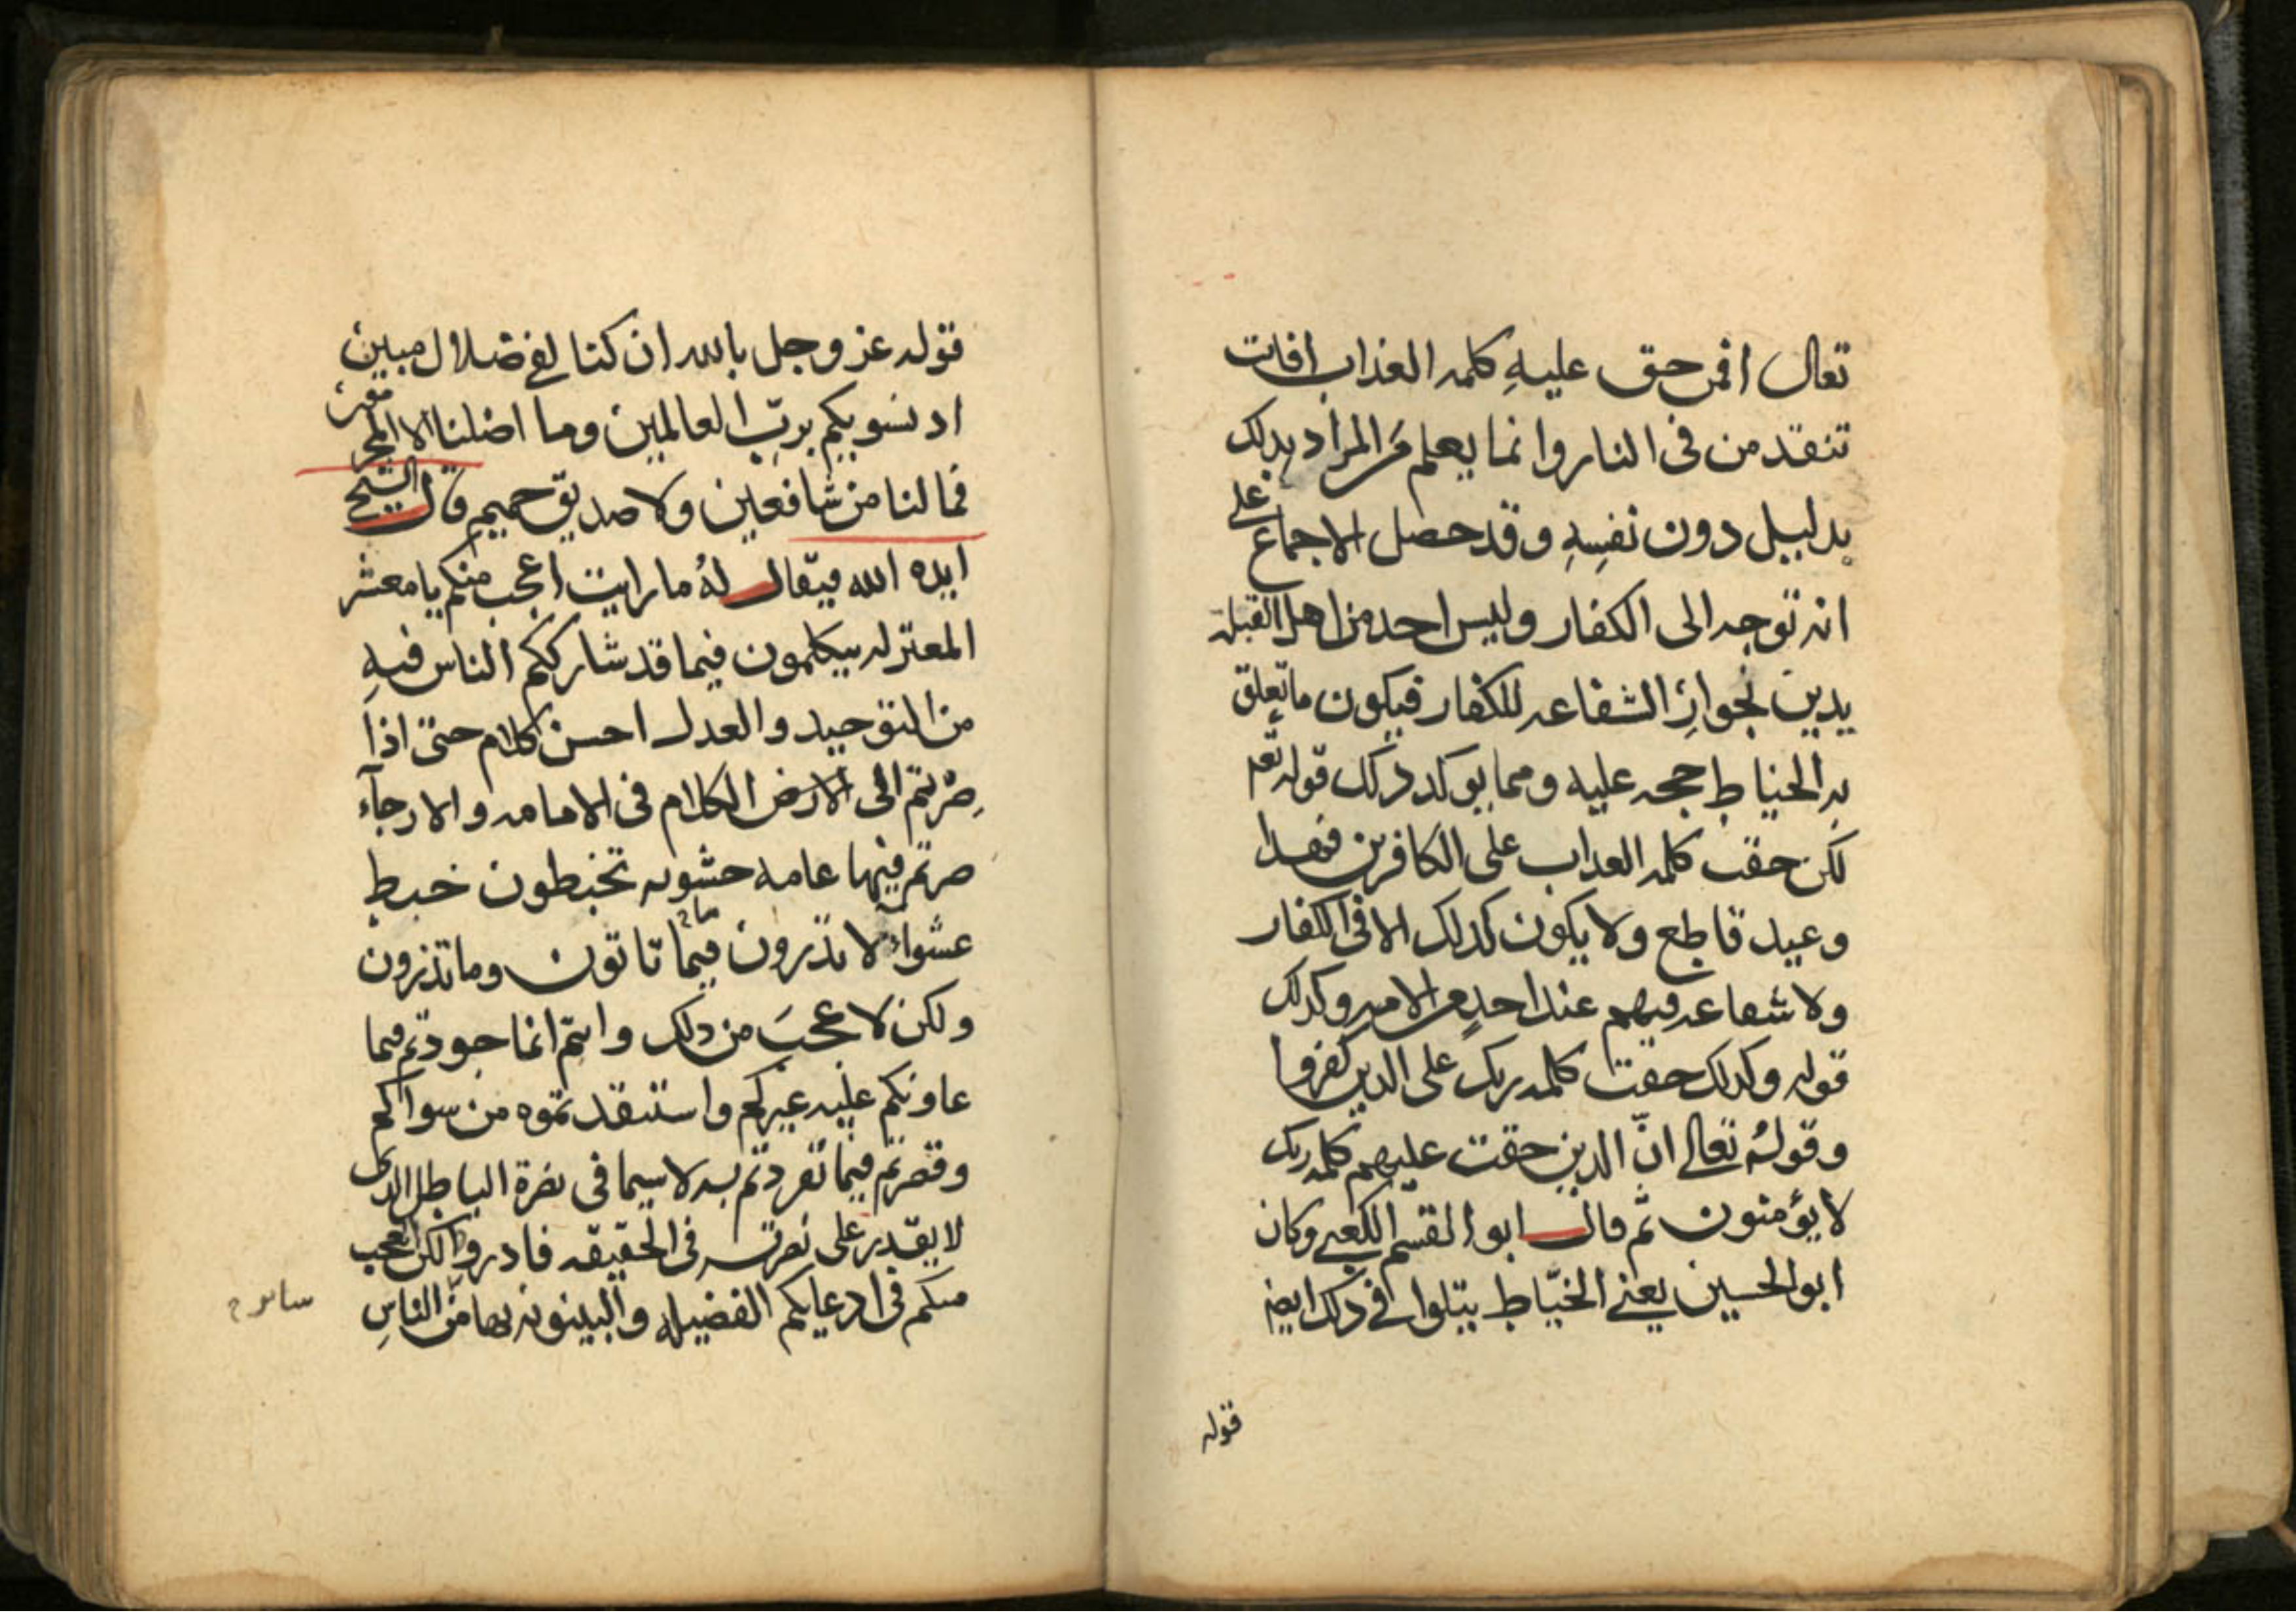 تعالى افمن حق عليهِ كلمه العذاب افانت
تنقذ من في النار وانما يعلم مَن المراد بذلك
بدليل دون نفسِهِ وقد حصل الاجماع على
انه توجه الى الكفار وليس احد من اهل القبله
يدين بجوازِ الشفاعه للكفار فيكون ما تعلق
به الخياط حجه عليه ومما يوكد ذلك قوله تعم
لكن حقت كلمه العداب على الكافرين فهدا
وعيد قاطع ولا يكون كدلك الا في الكفار
ولا شفاعه فيهم عند احدٍ من الامه وكدلك
قوله وكدلك حقت كلمه ربك على الدين كفروا
وقولهُ تعالى انّ الدين حقت عليهم كلمه ربك
لا يؤمنون ثم قال ابو القسم الكعبي وكان
ابو الحسين يعني الخيّاط يتلوا في ذلك ايضا
قوله
قوله عز وجل بالله ان كنا لفي ضلال مبين
اد نسويكم بربّ العالمين وما اضلنا الا المجرمون
فما لنا من شافعين ولا صديق حميم قال الشيخ
ايده الله فيقال لهُ ما رايت اعجب منكم يا معشر
المعتزله يتكلمون فيما قد شارككم الناس فيهِ
من التوحيد والعدل احسن كلام حتى اذا
صِرْتم الى الارض الكلام في الامامه والارجآء
صرتم فيها عامه حشويه تخبطون خبط
عشواء لا تدرون فيما ما تاتون وما تذرون
ولكن لا عجبَ من دلك وانتم انما جودتم فيما
عاونكم عليه غيركم واستنقدتموه من سواكم
وقصرتم فيما تفردتم به لاسيما في نصرة الباطل الدى
لا يقدر على نصرته في الحقيقه قادر ولكن العجب
منكم في ادعايكم الفضيله والبينونه بها من الناسِ